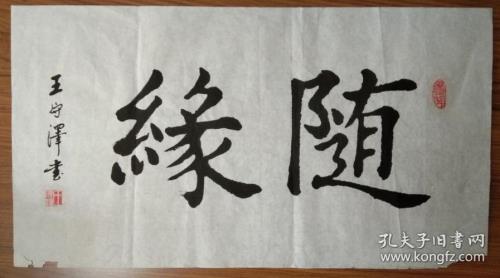 随緣
王守澤书
孔夫子旧书网
www.kongfz.com